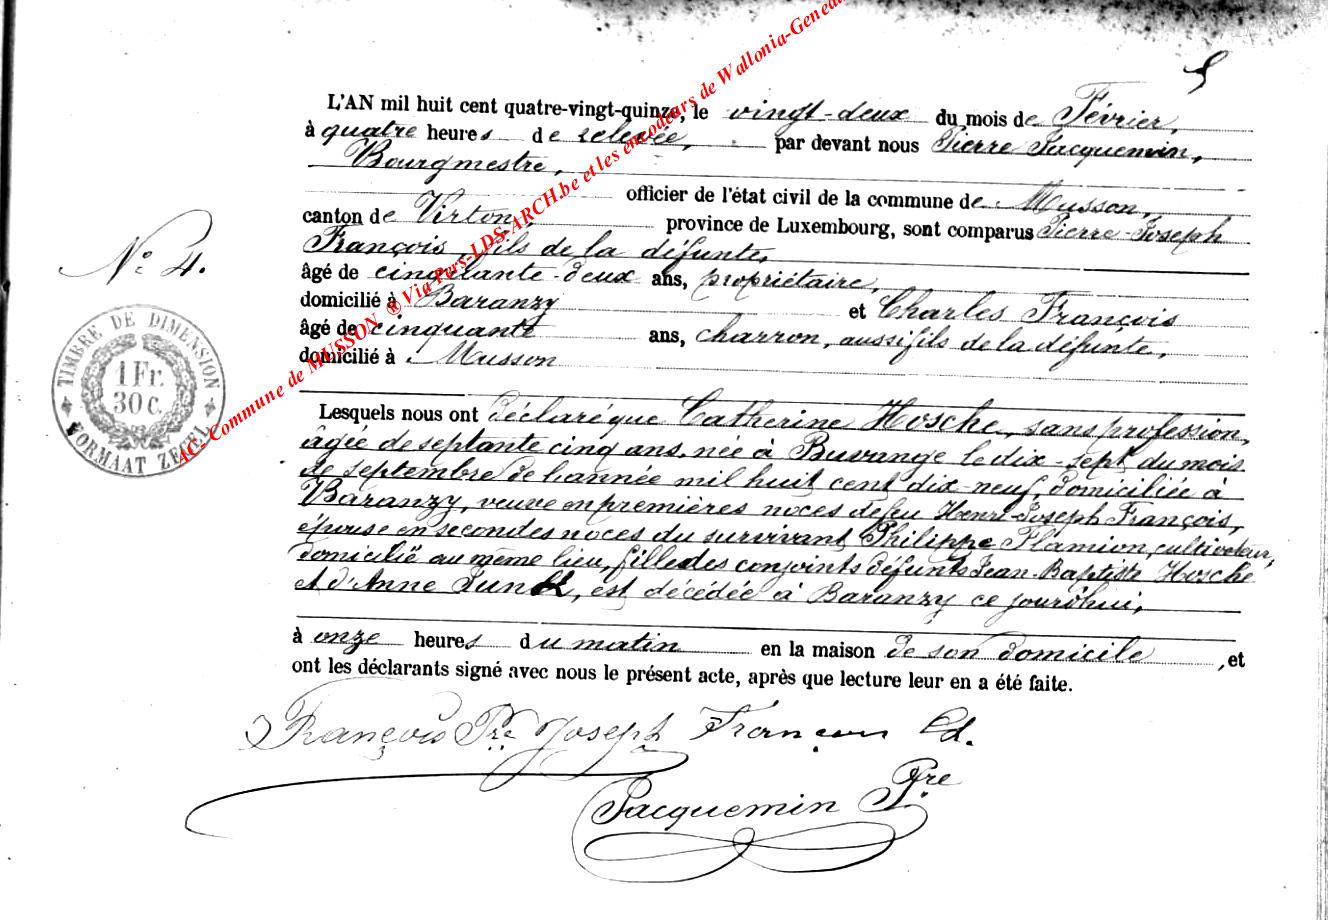 5
L'AN mil huit cent quatre-vingt-quinze, le vingt-deux du mois de Février,
à quatre heures de relevée, par devant nous Pierre Jacquemin,
Bourgmestre,
officier de l'état civil de la commune de Musson,
canton de Virton, province de Luxembourg, sont comparus Pierre-Joseph
François, fils de la défunte,
âgé de cinquante-deux ans, propriétaire,
domicilié à Baranzy et Charles François
âgé de cinquante ans, charron, aussi fils de la défunte,
domicilié à Musson
N° 4.
TIMBRE DE DIMENSION
1 Fr.
30 C.
FORMAAT ZEGEL
Lesquels nous ont déclaré que Catherine Hosche, sans profession,
âgée de septante cinq ans, née à Buvange le dix-sept du mois
de septembre de l'année mil huit cent dix-neuf, domiciliée à
Baranzy, veuve en premières noces de feu Henri-Joseph François,
épouse en secondes noces du survivant Philippe Flamion, cultivateur,
domicilié au même lieu, fille des conjoints défunts Jean-Baptiste Hosche
et d'Anne, est décédée à Baranzy ce jourd'hui,
à onze heures du matin en la maison de son domicile, et
ont les déclarants signé avec nous le présent acte, après que lecture leur en a été faite.
François Pre Joseph François Ch.
Jacquemin Pre
AC. Commune de MUSSON ® Via Pers-LDS-ARCH.be et les encodeurs de Wallonia-Genea